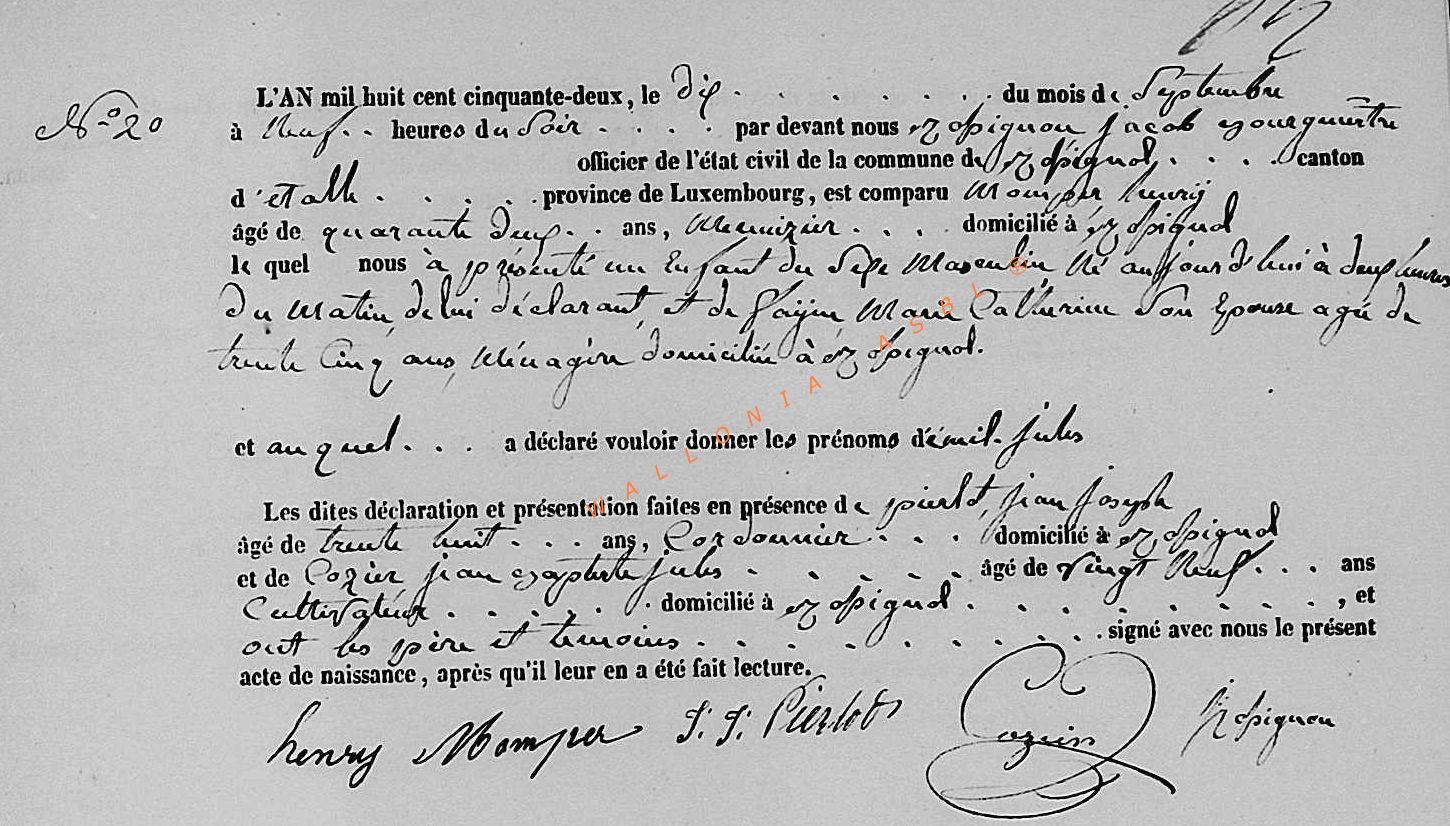 N.o 20
L'AN mil huit cent cinquante-deux, le dix . . . . . . . . du mois de Septembre
à neuf . . heures du Soir . . . . par devant nous jacob
officier de l'état civil de la commune de . . . . canton
d'etalle . . . . . province de Luxembourg, est comparu Momper henry
âgé de quarante deux . . ans, Menuizier . . . . domicilié à
le quel nous à présenté un Enfant du Sexe Masculin Né aujourd'hui à deux heures
du Matin, de lui déclarant, et de Marie Catherine Son Epouse agée de
trente Cinq ans, Ménagère domiciliée à
et auquel . . . a déclaré vouloir donner les prénoms d'émil jules
Les dites déclaration et présentation faites en présence de pierlot, jean joseph
âgé de trente huit . . . ans, Cordonnier . . . domicilié à
et de Cozier jean baptiste jules . . . . . . âgé de vingt Neuf . . . ans
Cultivateur . . . . . . domicilié à . . . . . . . . . , et
ont les père et temoins . . . . . . . . . signé avec nous le présent
acte de naissance, après qu'il leur en a été fait lecture.
henry Momper J. J. Pierlot
WALLONIA ASBL ®